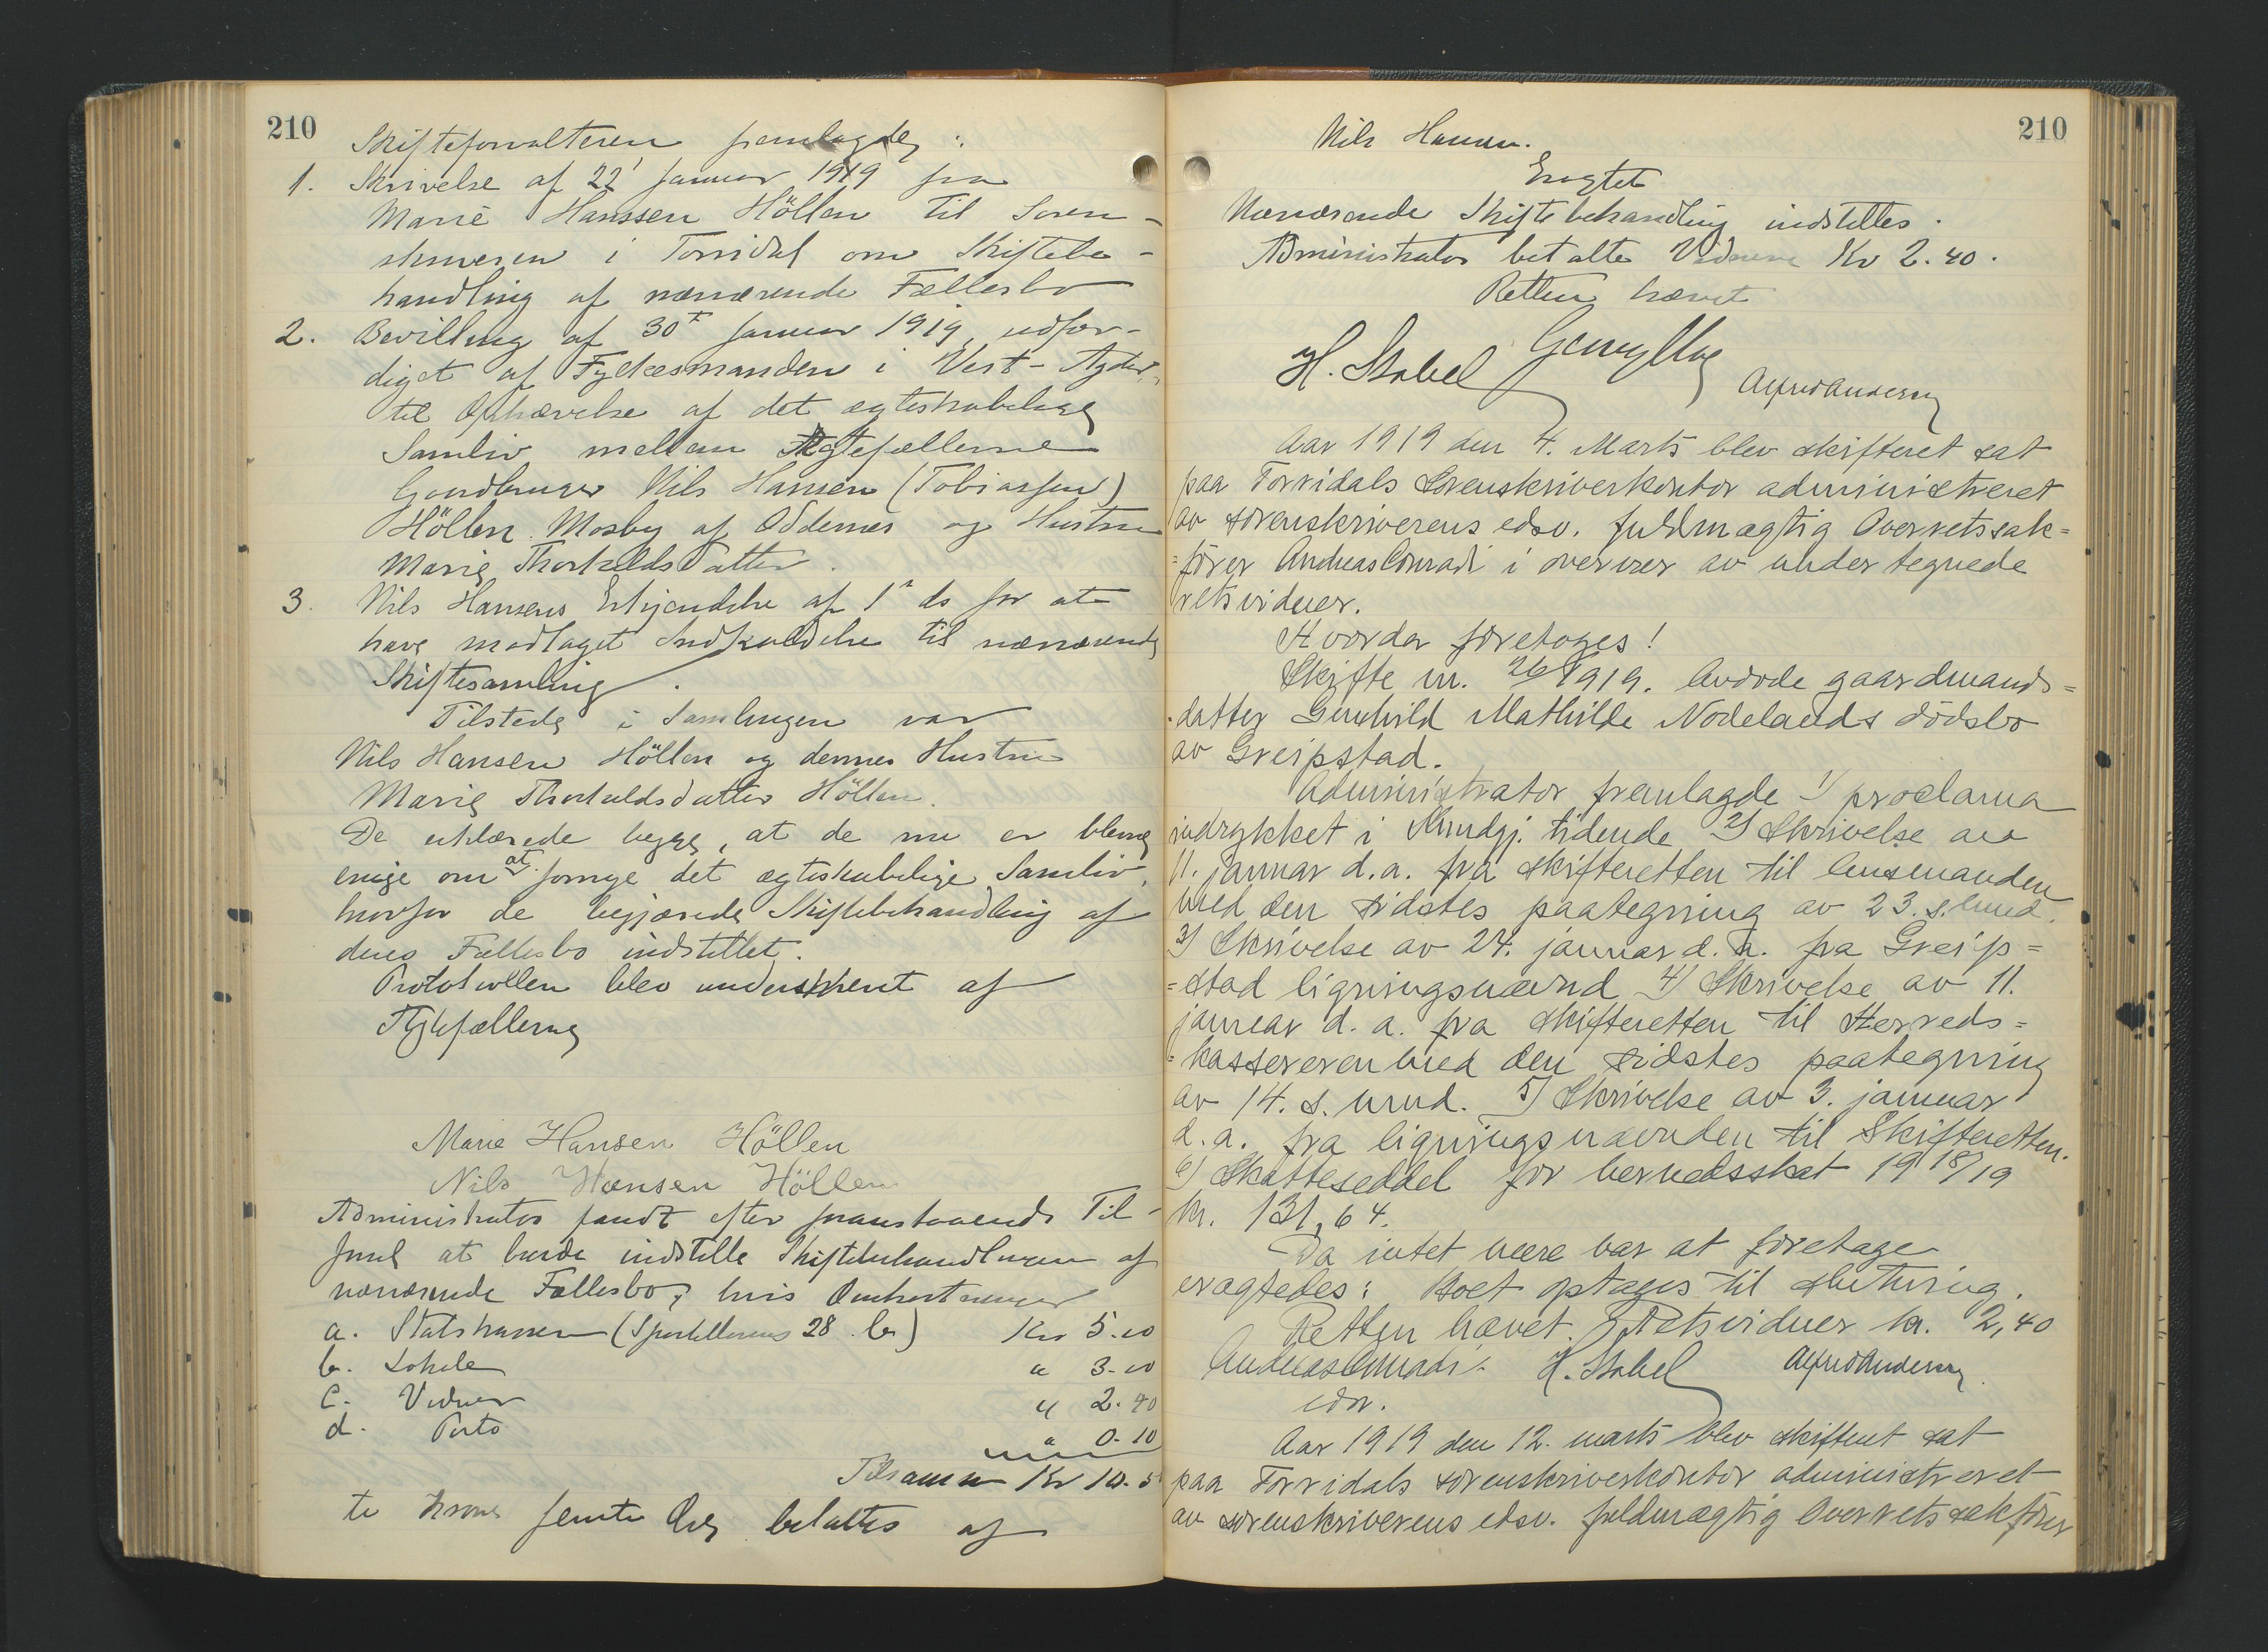 210
Skifteforvalteren fremlagde:
1. Skrivelse af 22' Januar 1919 fra
Marie Hanssen Höllen til Soren-
skriveren i Torridal om Skiftebe-
handling af nærværende Fællesbo
2. Bevilling af 30te Januar 1919, udfær-
diget af Fylkesmanden i Vest-Agder,
til Ophævelse af det ægteskabelige
Samliv mellem Ægtefællerne
Gaardbruger Nils Hansen (Tobiassen)
Höllen Mosby af Oddernes og Hustru
Marie Thorkeldsdatter.
3. Nils Hansens Erkjendelse af 1' ds for at
have modtaget Indkaldelse til nærværende
Skiftesamling.
Tilstede i Samlingen var
Nils Hansen Höllen og dennes Hustru
Marie Thorkeldsdatter Höllen.
De erklærede begge, at de nu er bleve
enige om at fornye det ægteskabelige Samliv,
hvorfor de begjærede Skiftebehandling af
deres Fællesbo indstillet.
Protokollen blev underskrevet af
Ægtefællerne
Marie Hansen Höllen
Nils Hansen Höllen
Administrator fandt efter foranstaaende Til-
førsel at burde indstille Skiftebehandlingen af
nærværende Fællesbo, hvis Omkostninger
a. Statskassen (Sportellovens 28 b.) Kr 5.00
b. Lokale " 3.00
c. Vidner " 2.40
d. Porto " 0.10
Tilsammen Kr 10.5
ti Kroner femti Øre betaltes af
210
Nils Hansen.
Eragtet
Nærværende Skiftebehandling indstilles.
Administrator betalte Vidnerne Kr 2.40.
Retten hævet
H. Stabel Alfred Andersen
Aar 1919 den 4. Marts blev skifteret sat
paa Torridals Sorenskriverkontor administreret
av sorenskriverens edsv. fuldmægtig Overretssak=
=förer Andreas Conradi i overvær av undertegnede
retsvidner.
Hvorda foretoges!
Skifte nr. 26/1919. Avdöde gaardmands=
-datter Gunhild Mathilde Nodelands dödsbo
av Greipstad.
Administrator fremlagde 1) proclama
indrykket i Kundgj. tidende 2) Skrivelse av
11. januar d.a. fra skifteretten til lensmanden
med den sidstes paategning av 23. s. mnd.
3) Skrivelse av 24. januar d.a. fra Greip=
=stad ligningsnævnd 4) Skrivelse av 11.
januar d.a. fra skifteretten til Herreds=
=kassereren med den sidstes paategning
av 14. s. mnd. 5) Skrivelse av 3. januar
d.a. fra ligningsnævnden til Skifteretten.
6) Skatteseddel for herredsskat 1918/19
kr. 131,64.
Da intet mere var at foretage
eragtedes: Boet optages til slutning.
Retten hævet. Retsvidner kr. 2,40
Andreas Conradi H. Stabel Alfred Andersen
edsv.
Aar 1919 den 12. marts blev skifteret sat
paa Torridals sorenskriverkontor administreret
av sorenskriverens edsv. fuldmægtig Overretssakförer